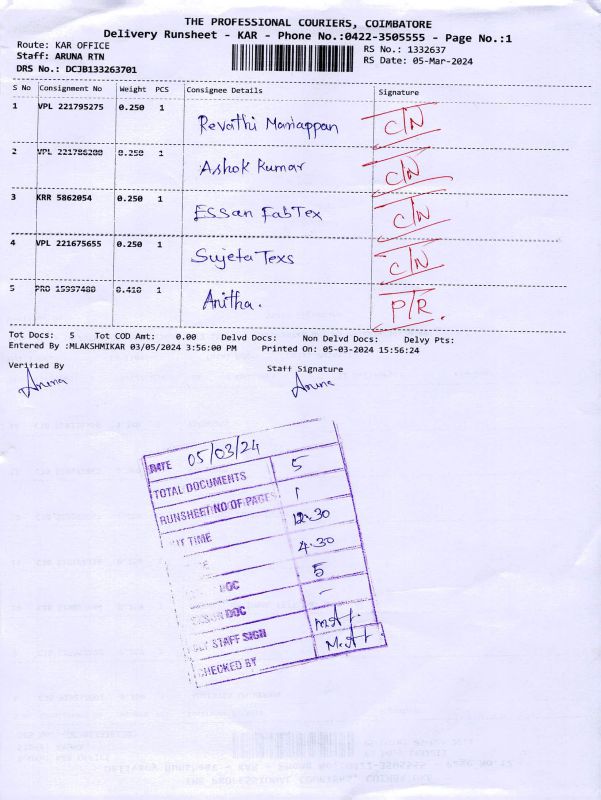 THE PROFESSIONAL COURIERS, COIMBATORE
Delivery Runsheet - KAR - Phone No.:0422-3505555 - Page No.:1
Route: KAR OFFICE RS No.: 1332637
Staff: ARUNA RTN RS Date: 05-Mar-2024
DRS No.: DCJB133263701
S No Consignment No Weight PCS Consignee Details Signature
1 VPL 221795275 0.250 1 Revathi Mariappan C/N
2 VPL 221786200 0.250 1 Ashok Kumar C/N
3 KRR 5862054 0.250 1 ESSan FabTex C/N
4 VPL 221675655 0.250 1 Sujeta Texs C/N
5 PRO 15997480 0.410 1 Anitha. P/R.
Tot Docs: 5 Tot COD Amt: 0.00 Delvd Docs: Non Delvd Docs: Delvy Pts:
Entered By :MLAKSHMIKAR 03/05/2024 3:56:00 PM Printed On: 05-03-2024 15:56:24
Verified By Staff Signature
Aruna Aruna
DATE 05/03/24
TOTAL DOCUMENTS 5
RUNSHEET NO OF PAGES 1
TIME 12.30
4.30
DOC 5
DOC -
STAFF SIGN
CHECKED BY